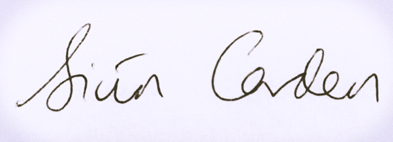 Siún Carden